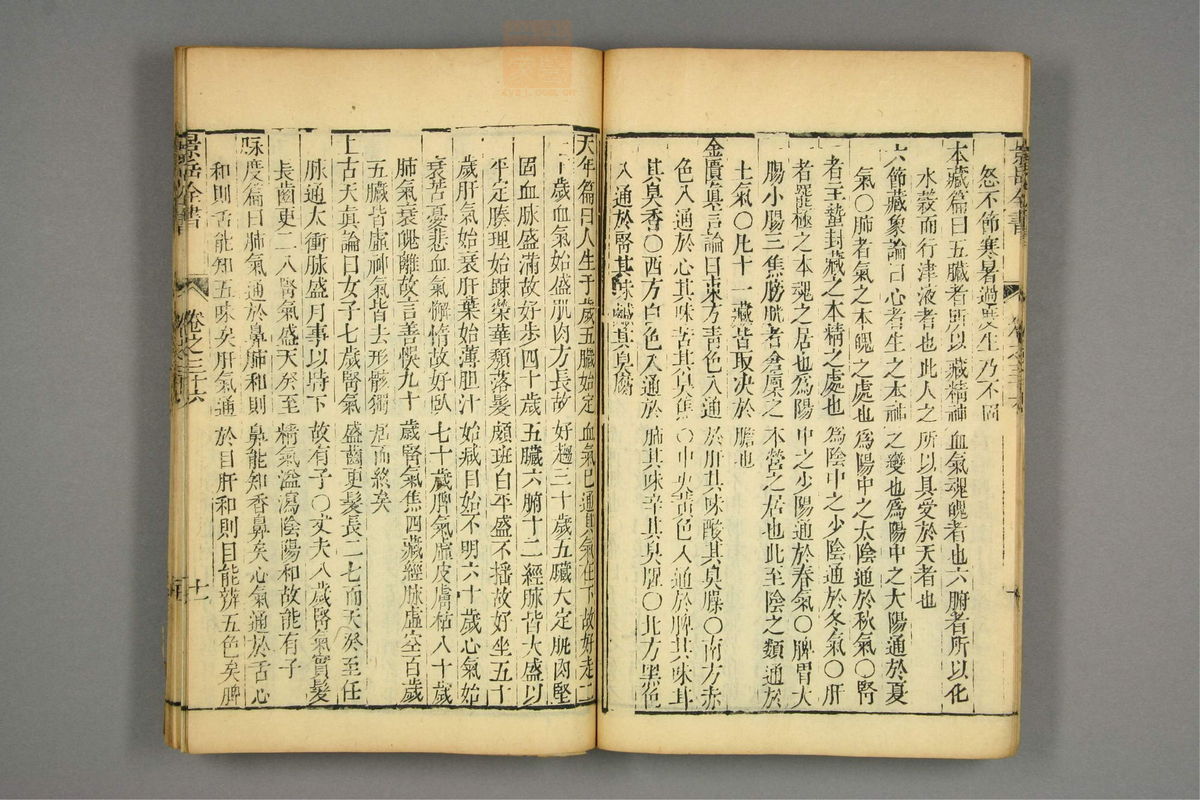 怒不節寒暑過度生乃不固
本藏篇曰五臟者所以藏精神血氣魂魄者也六腑者所以化
水穀而行津液者也此人之所以具受於天者也
六節藏象論曰心者生之本神之變也爲陽中之太陽通於夏
氣○肺者氣之本魄之處也爲陽中之太陰通於秋氣○腎
者主蟄封藏之本精之處也爲陰中之少陰通於冬氣○肝
者罷極之本魂之居也爲陽中之少陽通於春氣○脾胃大
腸小腸三焦膀胱者倉廩之本營之居也此至陰之類通於
土氣○凡十一藏皆取決於膽也
金匱眞言論曰東方靑色入通於肝其味酸其臭臊○南方赤
色入通於心其味苦其臭焦○中央黃色入通於脾其味甘
其臭香○西方白色入通於肺其味辛其臭腥○北方黑色
入通於腎其味鹹其臭腐
天年篇曰人生十歲五臟始定血氣已通其氣在下故好走二
十歲血氣始盛肌肉方長故好趨三十歲五臟大定肌肉堅
固血脈盛滿故好步四十歲五臟六腑十二經脈皆大盛以
平定腠理始踈榮華頹落髮頗斑白平盛不搖故好坐五十
歲肝氣始衰肝葉始薄膽汁始減目始不明六十歲心氣始
衰苦憂悲血氣懈惰故好臥七十歲脾氣虛皮膚枯八十歲
肺氣衰魄離故言善悞九十歲腎氣焦四藏經脈虛空百歲
五臟皆虛神氣皆去形骸獨居而終矣
上古天眞論曰女子七歲腎氣盛齒更髮長二七而天癸至任
脈通太衝脈盛月事以時下故有子○丈夫八歲腎氣實髮
長齒更二八腎氣盛天癸至精氣溢瀉陰陽和故能有子
脈度篇曰肺氣通於鼻肺和則鼻能知香臭矣心氣通於舌心
和則舌能知五味矣肝氣通於目肝和則目能辨五色矣脾
景岳全書
卷之三十六
十一